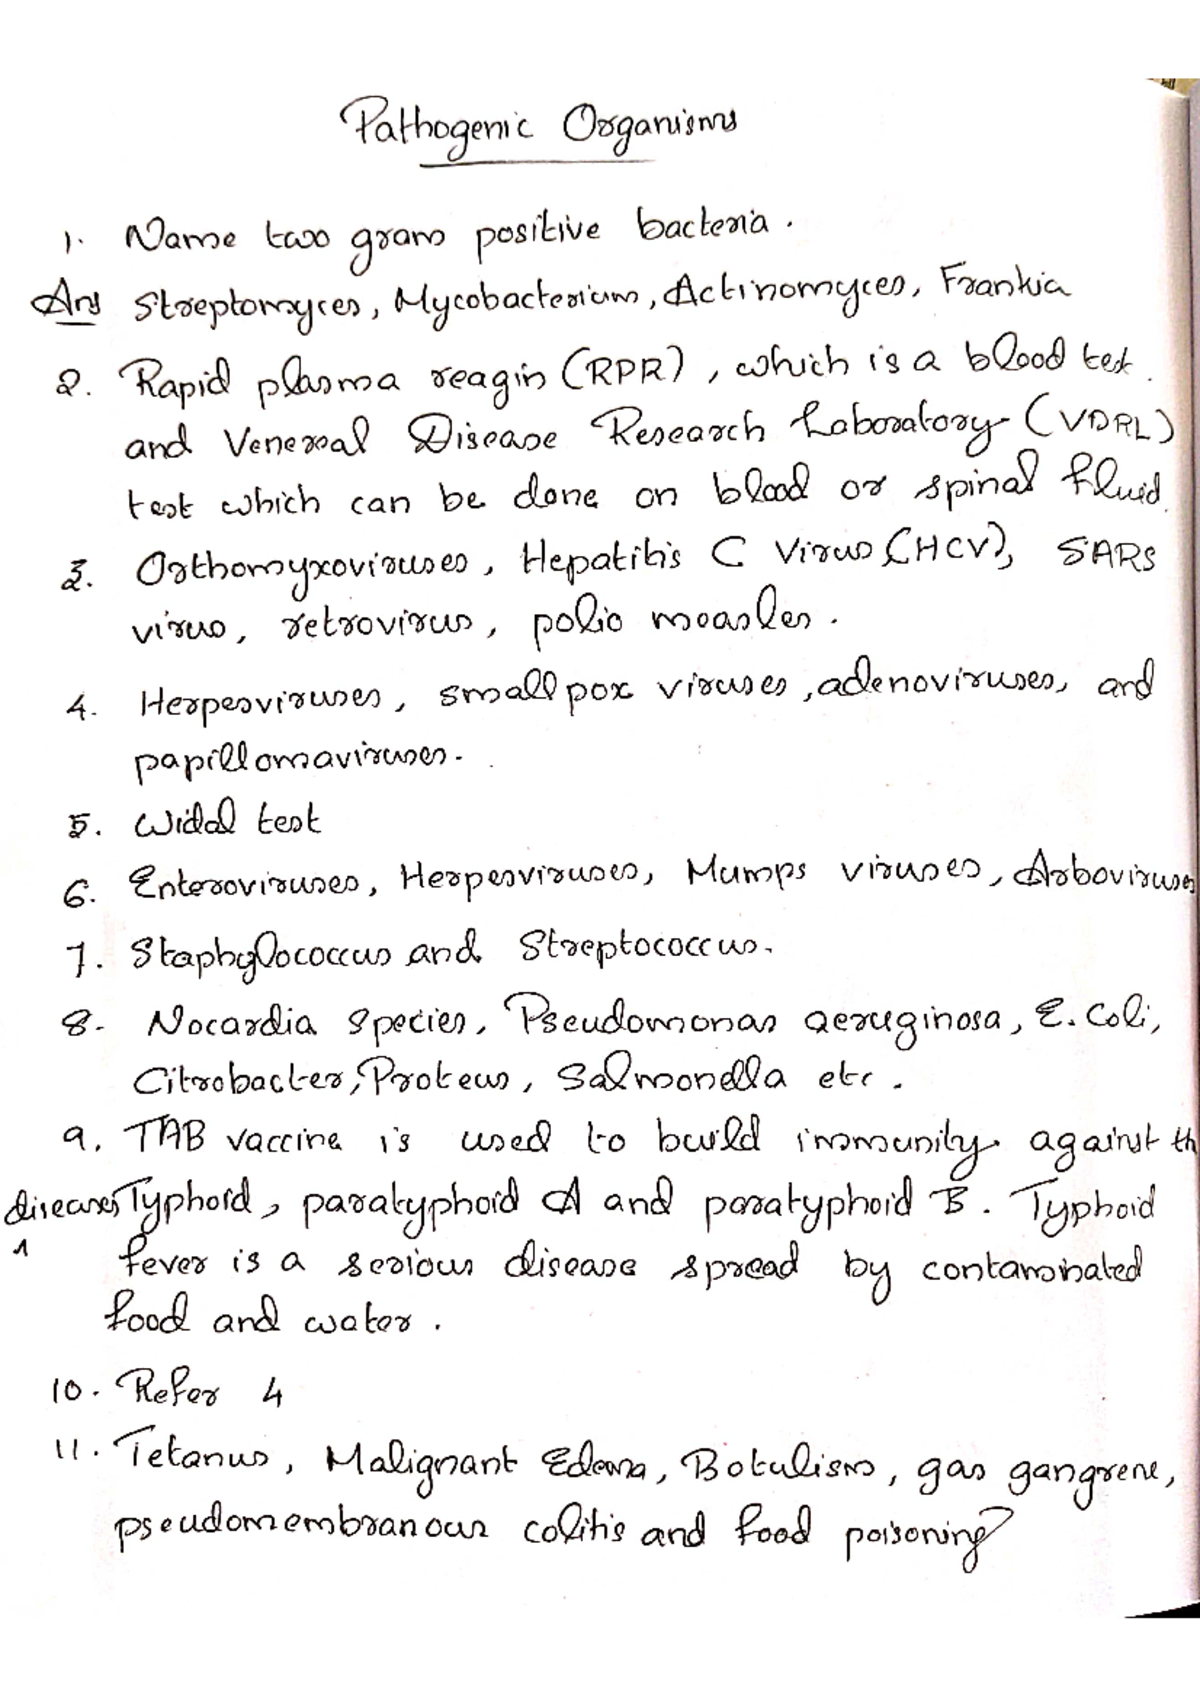 Pathogenic Organisms
1. Name two gram positive bacteria.
Ans Streptomyces, Mycobacterium, Actinomyces, Frankia
2. Rapid plasma reagin (RPR), which is a blood test.
and Venereal Disease Research Laboratory (VDRL)
test which can be done on blood or spinal fluid.
3. Orthomyxoviruses, Hepatitis C Virus (HCV), SARS
virus, retrovirus, polio measles.
4. Herpesviruses, smallpox viruses, adenoviruses, and
papillomaviruses.
5. Widal test
6. Enteroviruses, Herpesviruses, Mumps viruses, Arboviruses
7. Staphylococcus and Streptococcus.
8. Nocardia species, Pseudomonas aeruginosa, E. Coli,
Citrobacter, Proteus, Salmonella etc.
9. TAB vaccine is used to build immunity against th
diseases Typhoid, paratyphoid A and paratyphoid B. Typhoid
fever is a serious disease spread by contaminated
food and water.
10. Refer 4
11. Tetanus, Malignant Edema, Botulism, gas gangrene,
pseudomembranous colitis and food poisoning?